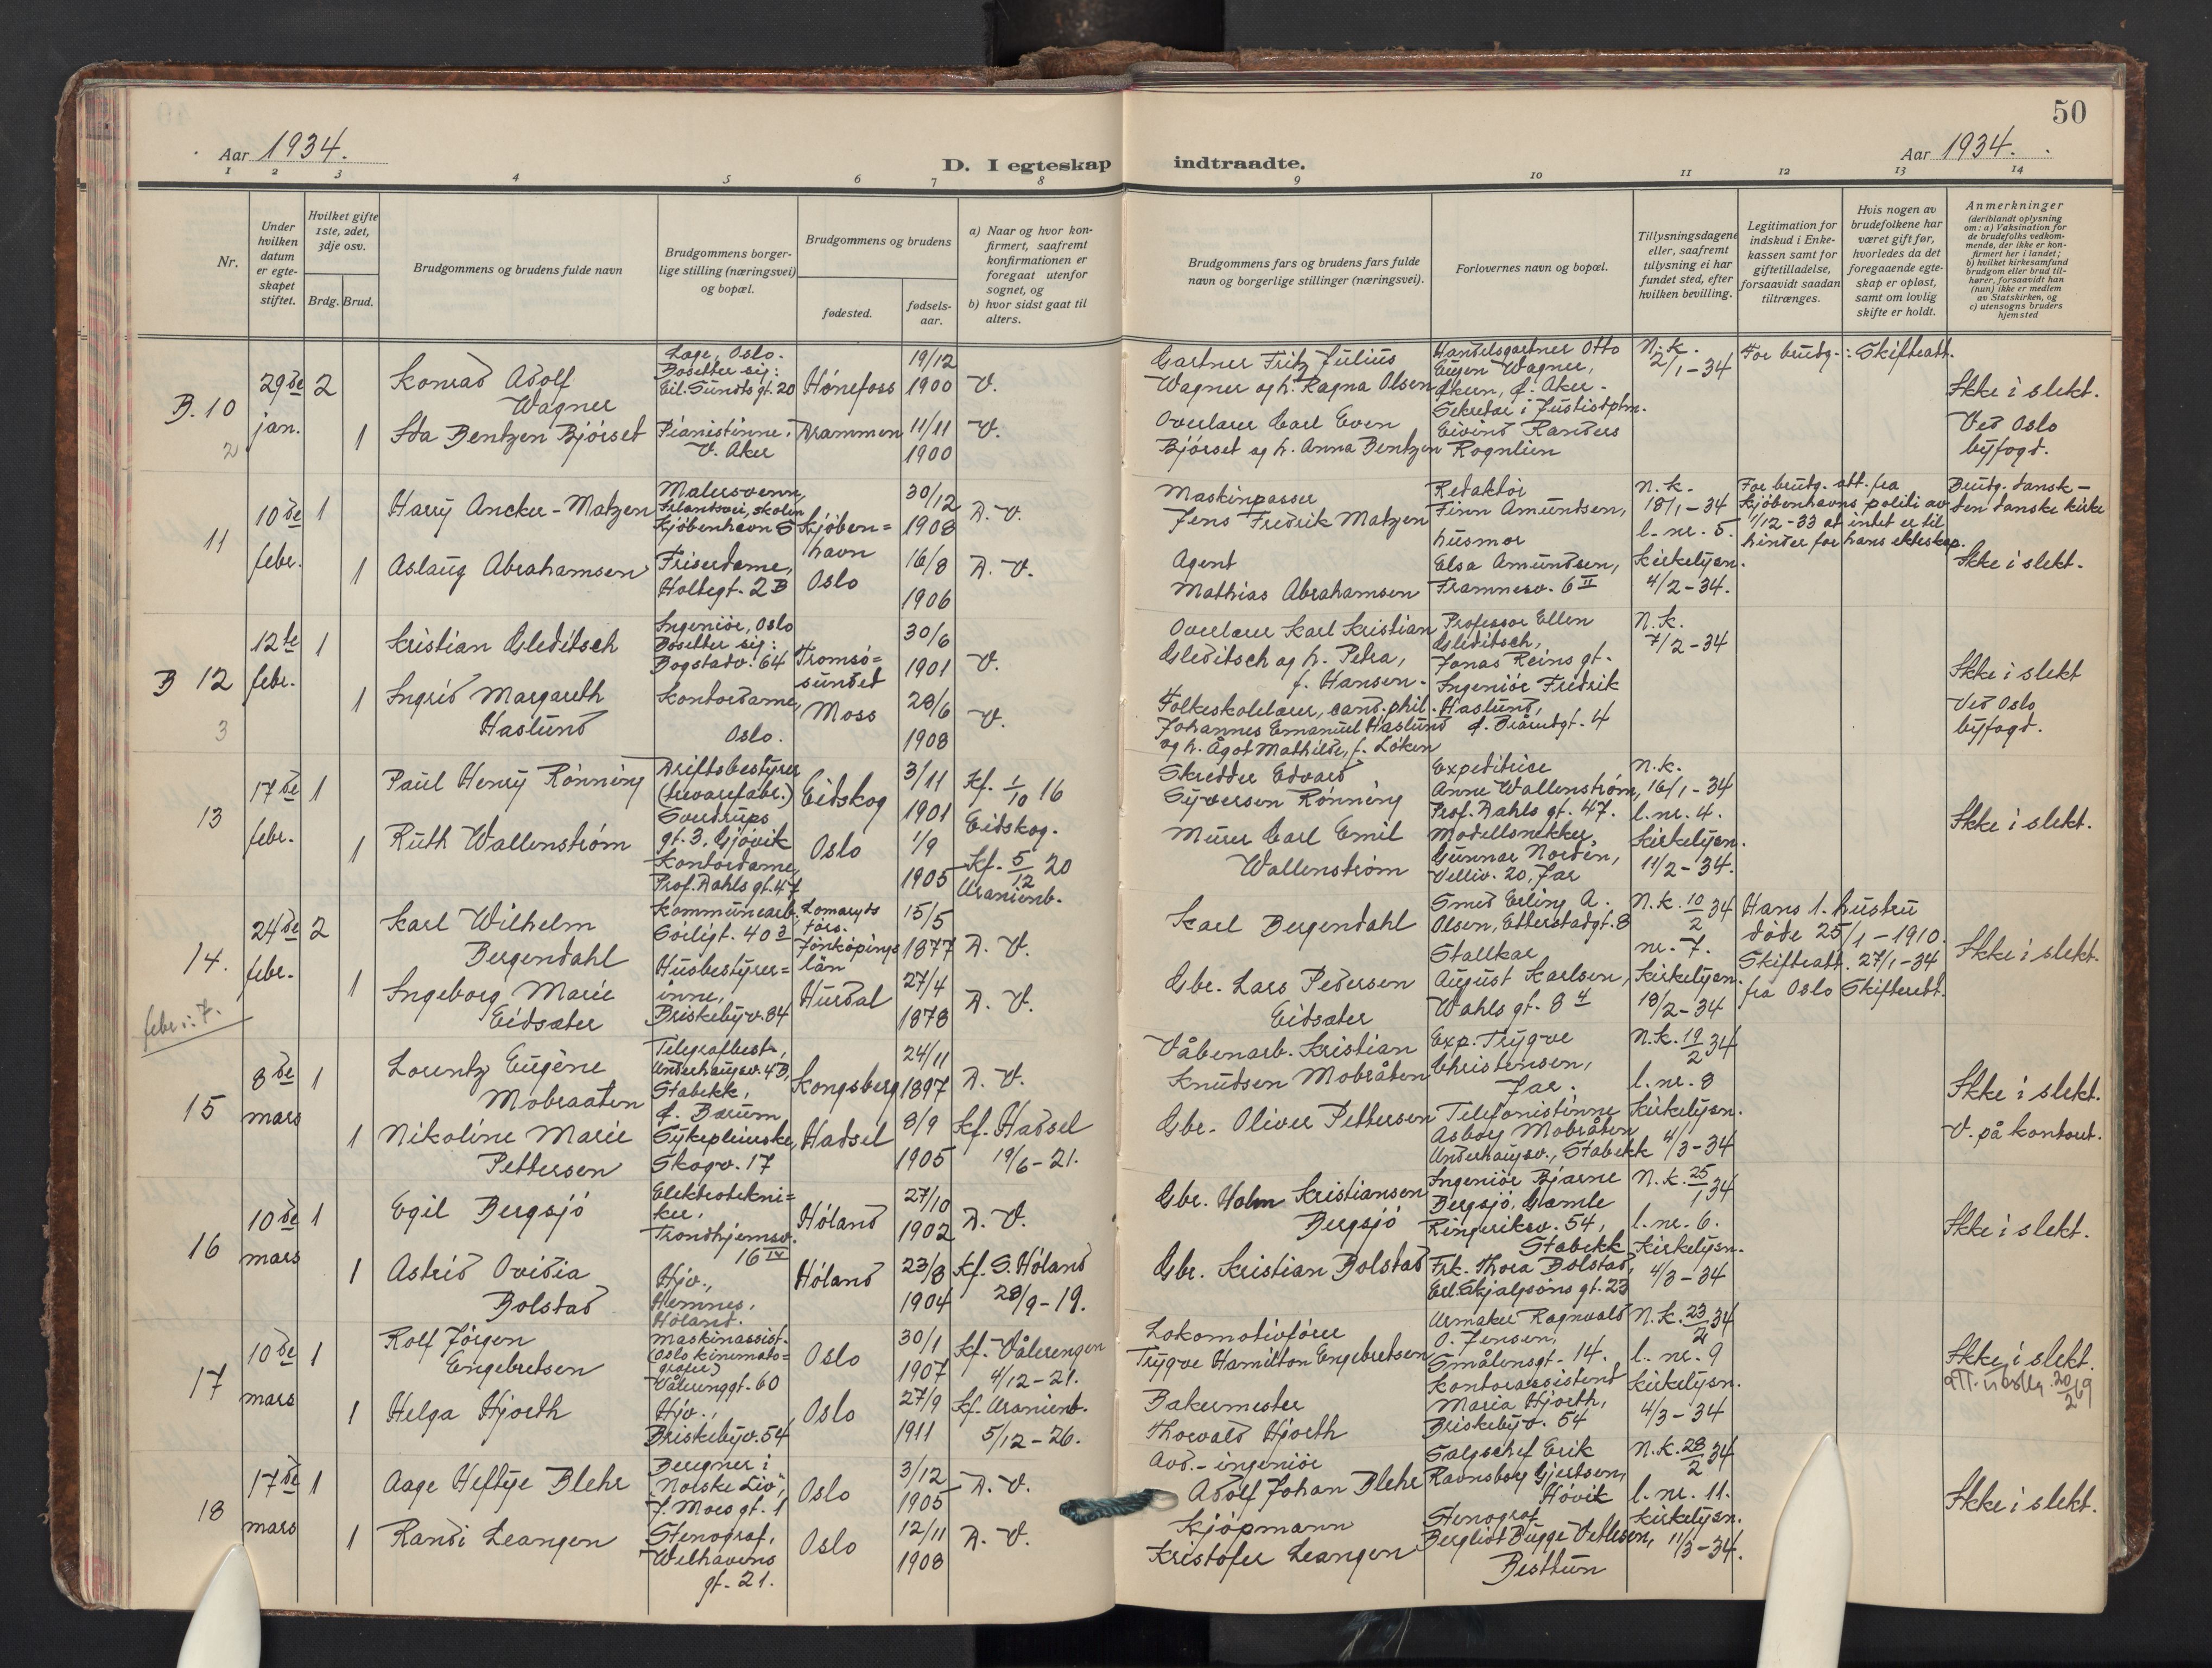 50
Aar 1934.
D. I egteskap indtraadte.
Aar 1934.
1 2 3 4 5 6 7 8 9 10 11 12 13 14
Nr.
Under hvilken datum er egteskapet stiftet.
Hvilket gifte 1ste, 2det, 3dje osv.
Brdg. Brud.
Brudgommens og brudens fulde navn
Brudgommens borgerlige stilling (næringsvei) og bopæl.
Brudgommens og brudens
fødested.
fødselsaar.
a) Naar og hvor konfirmert, saafremt konfirmationen er foregaat utenfor sognet, og
b) hvor sidst gaat til alters.
Brudgommens fars og brudens fars fulde navn og borgerlige stillinger (næringsvei).
Forlovernes navn og bopæl.
Tillysningsdagene eller, saafremt tillysning ei har fundet sted, efter hvilken bevilling.
Legitimation for indskud i Enkekassen samt for giftetilladelse, forsaavidt saadan tiltrænges.
Hvis nogen av brudefolkene har været gift før, hvorledes da det foregaaende egteskap er opløst, samt om lovlig skifte er holdt.
Anmerkninger
(deriblandt oplysning om: a) Vaksination for de brudefolks vedkommende, der ikke er konfirmert her i landet;
b) hvilket kirkesamfund brudgom eller brud tilhører, forsaavidt han (hun) ikke er medlem av Statskirken, og
c) utensogns bruders hjemsted
B. 10
2
29de jan.
2
Konrad Adolf Wagner
Læge, Oslo.
Bosetter sig:
Eil. Sundts gt. 20
Hønefoss
19/12 1900
V.
Gartner Fritz Julius
Wagner og h. Ragna Olsen
Handelsgartner Otto
Eugen Wagner,
Økern, Ø. Aker.
N.k.
2/1-34
For brudg.: Skifteatt.
Ikke i slekt.
1
Ida Bentzen Bjørset
Pianistinne,
V. Aker
Drammen
11/11 1900
V.
Overlærer Carl Even
Bjørset og h. Anna Bentzen
Sekretær i Justisdptm.
Eivind Randers
Rognlien
Ved Oslo
byfogd.
11
10de febr.
1
Harry Ancker-Matzen
Malersvenn,
Kjøbenhavn S
Kjøbenhavn
30/12 1908
D. V.
Maskinpasser
Jens Fredrik Matzen
Redaktør
Finn Amundsen,
N.k.
18/1-34
l. nr. 5.
For brudg. att. fra
Kjøbenhavns politi av
1/12-33 at intet er til
hinder for hans ekteskap.
Brudg. dansk -
den danske kirke
1
Aslaug Abrahamsen
Friserdame,
Holtegt. 2B
Oslo
16/8 1906
D. V.
Agent
Mathias Abrahamsen
husmor
Elsa Amundsen,
Framnesv. 6 II
Kirkelysn.
4/2-34.
Ikke i slekt.
B 12
3
12te febr.
1
Kristian Gleditsch
Ingeniør, Oslo
Bosetter sig:
Bogstadv. 64
Tromsøsundet
30/6 1901
V.
Overlærer Karl Kristian
Gleditsch og h. Petra,
f. Hansen.
Professor Ellen
Gleditsch,
Jonas Reins gt.
N.k.
7/2-34
Ikke i slekt
1
Ingrid Margareth
Haslund
Kontordame,
Oslo.
Moss
28/6 1908
V.
Folkeskolelærer, cand. phil.
Johannes Emanuel Haslund
og h. Ågot Mathilde, f. Løken
Ingeniør Fredrik
Haslund,
Ø. Biåendgt. 4
Ved Oslo
byfogd.
13
17de febr.
1
Paul Henry Rønning
Driftsbestyrer
(trevarefabr.)
Sverdrups
gt. 3, Gjøvik
Eidskog
3/11 1901
Kf. 1/10 16
Eidskog.
Skredder Edvard
Syversen Rønning
Expeditrice
Anne Wallenstrøm,
Prof. Dahls gt. 47.
N.k.
16/1-34
l. nr. 4.
Ikke i slekt.
1
Ruth Wallenstrøm
Kontordame,
Prof. Dahls gt. 47
Oslo
1/9 1905
Kf. 5/12 20
Uranienb.
Murer Carl Emil
Wallenstrøm
Modellsnekker
Gunnar Nordén,
Velliv. 20, Jar
Kirkelysn.
11/2-34.
14.
24de febr.
2
Karl Wilhelm
Bergendahl
Kommunearb.
Sørligt. 40 3
Lomaryds
förs.
Jönköpings
län
15/5 1877
D. V.
Karl Bergendahl
Smed Erling A.
Olsen, Etterstadgt. 8
N.k. 10/2 34
nr. 7.
Hans 1. hustru
døde 25/1-1910.
Skifteatt. 27/1-34
fra Oslo Skifterett.
Ikke i slekt.
1
Ingeborg Marie
Eidsæter
Husbestyrerinne,
Briskebyv. 84
Hurdal
27/4 1878
D. V.
Gbr. Lars Pedersen
Eidsæter
Stallkar
August Karlsen,
Wahls gt. 8 4
Kirkelysn.
18/2-34
febr.: 7.
15
8de mars
1
Lorentz Eugène
Mobraaten
Telegrafbest.,
Underhaugsv. 4B,
Stabekk,
Ø. Bærum
Kongsberg
24/11 1897
D. V.
Våbenarb. Kristian
Knudsen Mobråten
Exp. Trygve
Christensen,
Jar.
N.k. 19/2 34
l. nr. 8
Ikke i slekt.
1
Nikoline Marie
Pettersen
Sykepleierske,
Skogv. 17
Hadsel
8/9 1905
Kf. Hadsel
19/6-21.
Gbr. Oliver Pettersen
Telefonistinne
Asborg Mobråten
Underhaugsv., Stabekk
Kirkelysn.
4/3-34
V. på kontoret.
16
10de mars
1
Egil Bergsjø
Elektrotekniker,
Trondhjemsv.
16 IV
Høland
27/10 1902
D. V.
Gbr. Holm Kristiansen
Bergsjø
Ingeniør Bjarne
Bergsjø, Gamle
Ringeriksv. 54,
Stabekk
N.k. 25/1 34
l. nr. 6.
Ikke i slekt.
1
Astrid Ovidia
Bolstad
Hjv.,
Hemnes,
Høland.
Høland
23/8 1904
Kf. S. Høland
28/9-19.
Gbr. Kristian Bolstad
Frk. Thora Bolstad,
Erl. Skjalgsøns gt. 23
Kirkelysn.
4/3-34
17
10de mars
1
Rolf Jørgen
Engebretsen
Maskinassist.
(Oslo kinematografer)
Vålerenggt. 60
Oslo
30/1 1907
Kf. Vålerengen
4/12-21.
Lokomotivfører
Trygve Hamilton Engebretsen
Urmaker Ragnvald
O. Jensen,
Smålensgt. 14.
N.k. 23/2 34
l. nr. 9
Ikke i slekt.
att. 20/2 69
1
Helga Hjorth
Hjv.,
Briskebyv. 54
Oslo
27/9 1911
Kf. Uranienb.
5/12-26.
Bakermester
Thorvald Hjorth
Kontorassistent
Maria Hjorth,
Briskebyv. 54
Kirkelysn.
4/3-34
18
17de mars
1
Aage Heftye Blehr
Beregner i
"Norske Liv",
J. Moes gt. 1
Oslo
3/12 1905
D. V.
Avd.-ingeniør
Adolf Johan Blehr
Salgschef Erik
Ravnsborg Gjertsen,
Høvik
N.k. 28/2 34
l. nr. 11.
Ikke i slekt.
1
Randi Leangen
Stenograf,
Welhavens
gt. 21.
Oslo
12/11 1908
D. V.
Kjøpmann
Kristofer Leangen
Stenograf
Bergliot Bugge Vetlesen,
Besttun
Kirkelysn.
11/3-34.